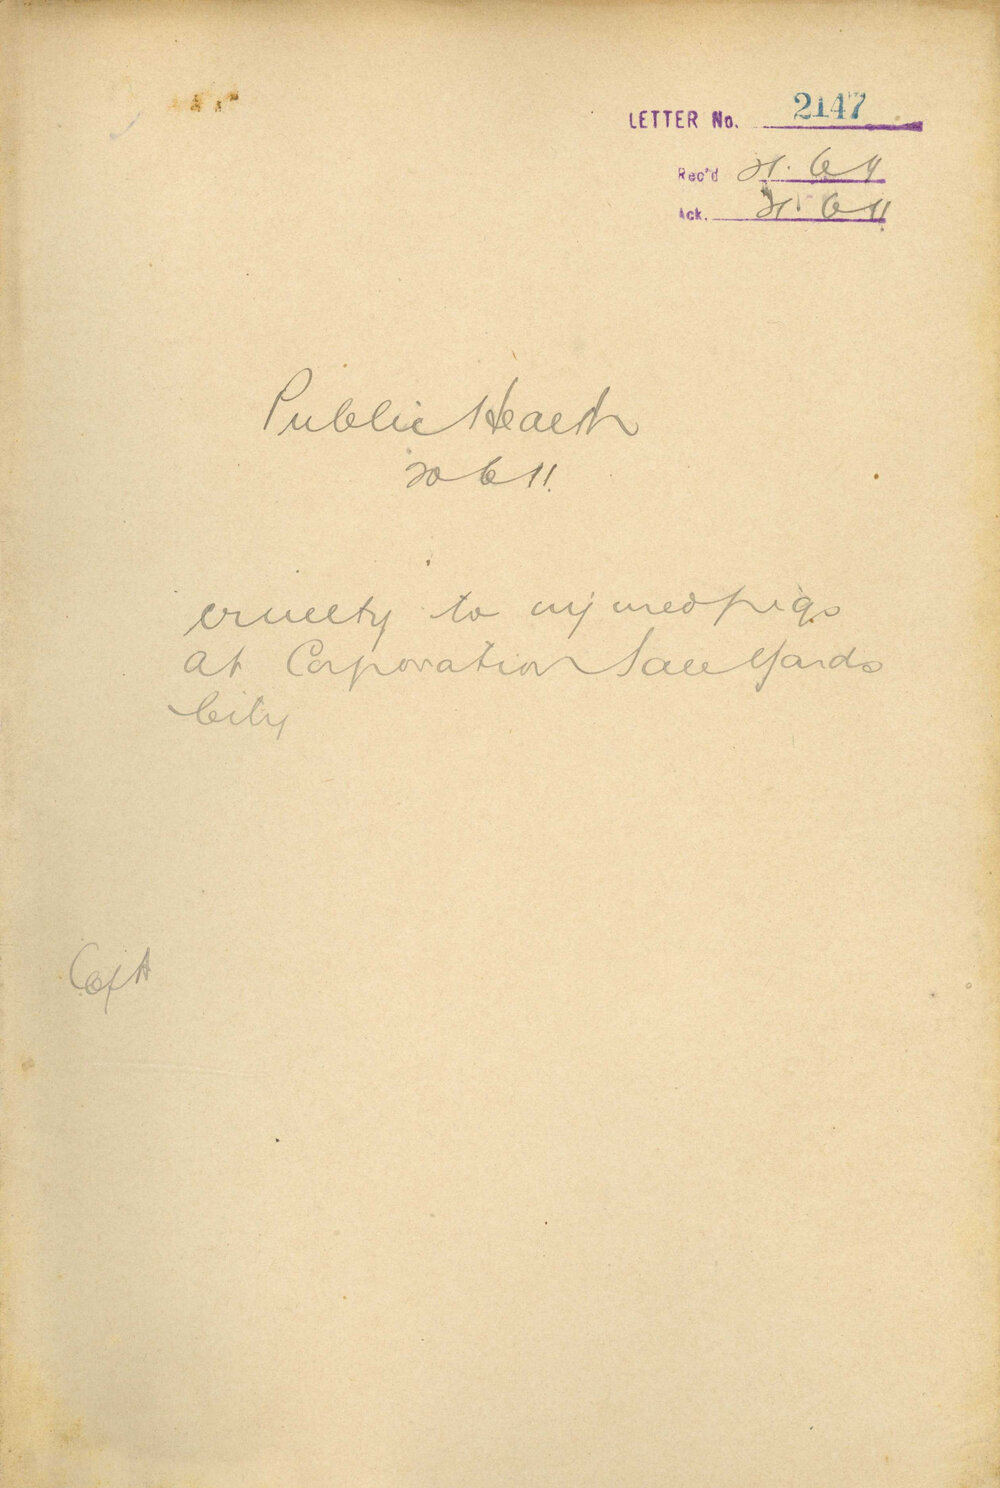 LETTER No. 2147
Rec'd 21. 6 11
Ack. 21 6 11
Public Health
20 6 11.
cruelty to injured pigs
at Corporation Sale Yards
City
C of A